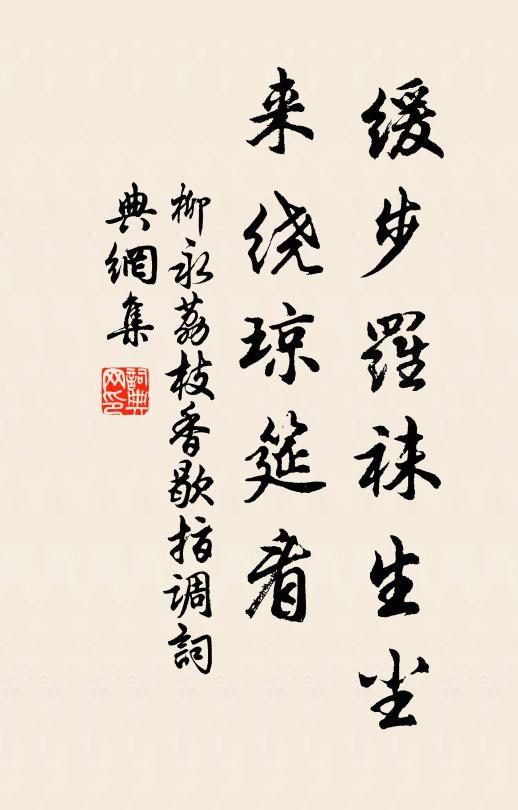 缓步羅袜生尘
来绕琼筵看
柳永荔枝香歇指调詞
典網集
詞典网印